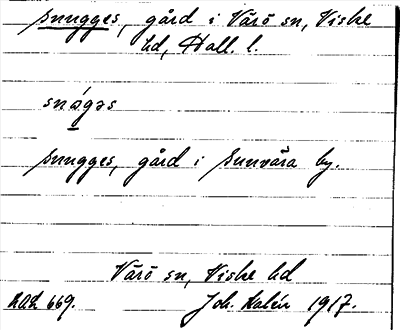 Snugges, gård i Värö sn, Viske
hd, Hall. l.
snǿgəs
Snugges, gård i Sunvära by.
Värö sn, Viske hd
669. Joh. Kalén 1917.